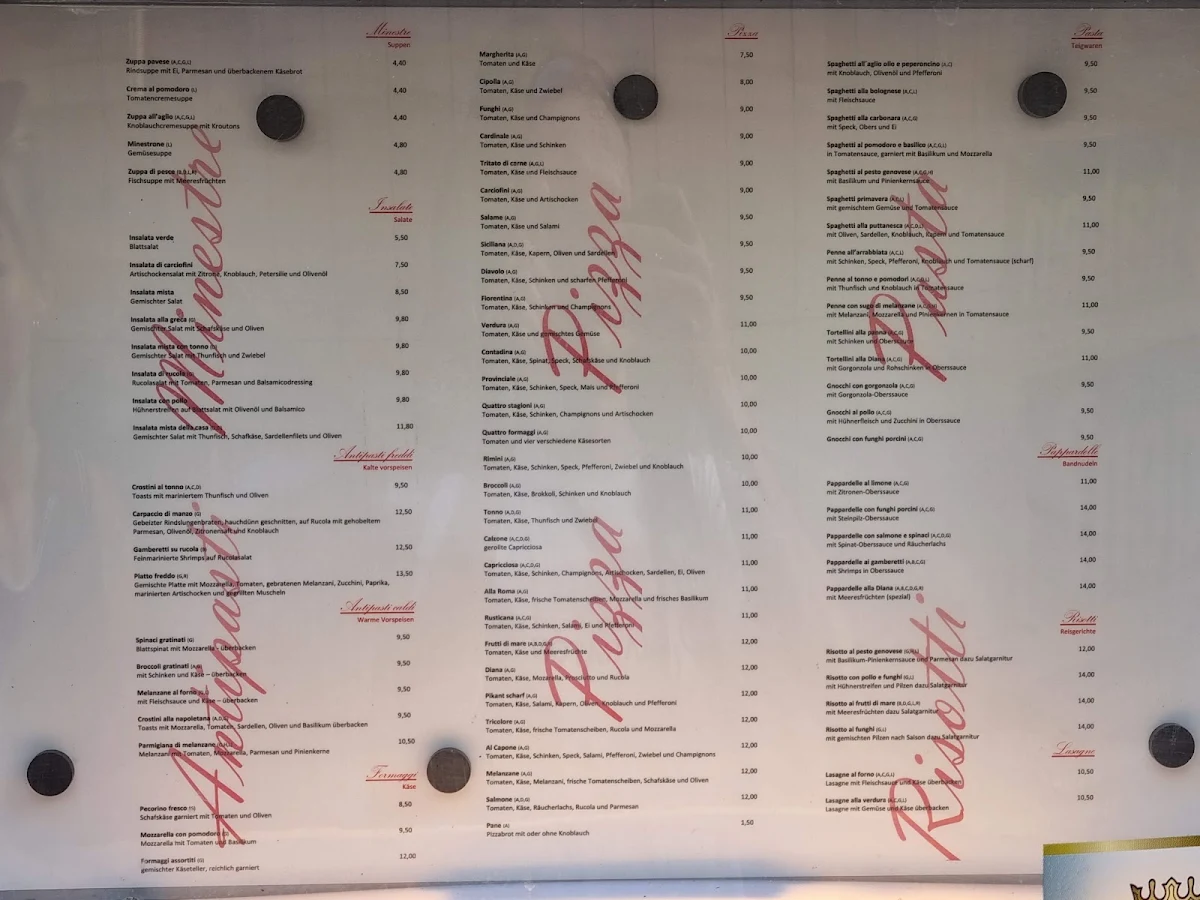 Minestre
Suppen
Zuppa pavese (A,C,G,L) 4,40
Rindsuppe mit Ei, Parmesan und überbackenem Käsebrot
Crema al pomodoro (G) 4,40
Tomatencremesuppe
Zuppa all'aglio (A,C,G,L) 4,40
Knoblauchcremesuppe mit Kroutons
Minestrone (L) 4,80
Gemüsesuppe
Zuppa di pesce 4,80
Fischsuppe mit Meeresfrüchten
Insalate
Salate
Insalata verde 5,50
Blattsalat
Insalata di carciofini 7,50
Artischockensalat mit Zitrone, Knoblauch, Petersilie und Olivenöl
Insalata mista 8,50
Gemischter Salat
Insalata alla greca (G) 9,80
Gemischter Salat mit Schafskäse und Oliven
Insalata mista con tonno 9,80
Gemischter Salat mit Thunfisch und Zwiebel
Insalata di rucola 9,80
Rucolasalat mit Tomaten, Parmesan und Balsamicodressing
Insalata con pollo 9,80
Hühnerstreifen auf Blattsalat mit Olivenöl und Balsamico
Insalata mista della casa 11,80
Gemischter Salat mit Thunfisch, Schafkäse, Sardellenfilets und Oliven
Antipasti freddi
Kalte vorspeisen
Crostini al tonno (A,C,D) 9,50
Toasts mit mariniertem Thunfisch und Oliven
Carpaccio di manzo (G) 12,50
Gebeizter Rindslungenbraten, hauchdünn geschnitten, auf Rucola mit gehobeltem
Parmesan, Olivenöl, Zitronensaft und Knoblauch
Gamberetti su rucola 12,50
Feinmarinierte Shrimps auf Rucolasalat
Piatto freddo (G,R) 13,50
Gemischte Platte mit Mozzarella, Tomaten, gebratenen Melanzani, Zucchini, Paprika,
marinierten Artischocken und gegrillten Muscheln
Antipasti caldi
Warme Vorspeisen
Spinaci gratinati (G) 9,50
Blattspinat mit Mozzarella - überbacken
Broccoli gratinati 9,50
mit Schinken und Käse – überbacken
Melanzane al forno 9,50
mit Fleischsauce und Käse – überbacken
Crostini alla napoletana 9,50
Toasts mit Mozzarella, Tomaten, Sardellen, Oliven und Basilikum überbacken
Parmigiana di melanzane 10,50
Melanzani mit Tomaten, Mozzarella, Parmesan und Pinienkerne
Formaggi
Käse
Pecorino fresco (G) 8,50
Schafskäse garniert mit Tomaten und Oliven
Mozzarella con pomodoro 9,50
Mozzarella mit Tomaten und Basilikum
Formaggi assortiti (G) 12,00
gemischter Käseteller, reichlich garniert
Minestre
Antipasti
Pizza
Margherita (A,G) 7,50
Tomaten und Käse
Cipolla (A,G) 8,00
Tomaten, Käse und Zwiebel
Funghi (A,G) 9,00
Tomaten, Käse und Champignons
Cardinale (A,G) 9,00
Tomaten, Käse und Schinken
Tritato di carne (A,G,L) 9,00
Tomaten, Käse und Fleischsauce
Carciofini (A,G) 9,00
Tomaten, Käse und Artischocken
Salame (A,G) 9,50
Tomaten, Käse und Salami
Siciliana (A,D,G) 9,50
Tomaten, Käse, Kapern, Oliven und Sardellen
Diavolo (A,G) 9,50
Tomaten, Käse, Schinken und scharfen Pfefferoni
Fiorentina (A,G) 9,50
Tomaten, Käse, Schinken und Champignons
Verdura (A,G) 11,00
Tomaten, Käse und gemischtes Gemüse
Contadina (A,G) 10,00
Tomaten, Käse, Spinat, Speck, Schafskäse und Knoblauch
Provinciale (A,G) 10,00
Tomaten, Käse, Schinken, Speck, Mais und Pfefferoni
Quattro stagioni (A,G) 10,00
Tomaten, Käse, Schinken, Champignons und Artischocken
Quattro formaggi (A,G) 10,00
Tomaten und vier verschiedene Käsesorten
Rimini (A,G) 10,00
Tomaten, Käse, Schinken, Speck, Pfefferoni, Zwiebel und Knoblauch
Broccoli (A,G) 10,00
Tomaten, Käse, Brokkoli, Schinken und Knoblauch
Tonno (A,D,G) 11,00
Tomaten, Käse, Thunfisch und Zwiebel
Calzone (A,C,D,G) 11,00
gerollte Capricciosa
Capricciosa (A,C,D,G) 11,00
Tomaten, Käse, Schinken, Champignons, Artischocken, Sardellen, Ei, Oliven
Alla Roma (A,G) 11,00
Tomaten, Käse, frische Tomatenscheiben, Mozzarella und frisches Basilikum
Rusticana (A,C,G) 11,00
Tomaten, Käse, Schinken, Salami, Ei und Pfefferoni
Frutti di mare 12,00
Tomaten, Käse und Meeresfrüchte
Diana (A,G) 12,00
Tomaten, Käse, Mozarella, Prosciutto und Rucola
Pikant scharf (A,G) 12,00
Tomaten, Käse, Salami, Kapern, Oliven, Knoblauch und Pfefferoni
Tricolore (A,G) 12,00
Tomaten, Käse, frische Tomatenscheiben, Rucola und Mozzarella
Al Capone (A,G) 12,00
Tomaten, Käse, Schinken, Speck, Salami, Pfefferoni, Zwiebel und Champignons
Melanzane (A,G) 12,00
Tomaten, Käse, Melanzani, frische Tomatenscheiben, Schafskäse und Oliven
Salmone (A,D,G) 12,00
Tomaten, Käse, Räucherlachs, Rucola und Parmesan
Pane (A) 1,50
Pizzabrot mit oder ohne Knoblauch
Pizza
Pizza
Pasta
Teigwaren
Spaghetti all'aglio olio e peperoncino (A,C) 9,50
mit Knoblauch, Olivenöl und Pfefferoni
Spaghetti alla bolognese (A,C,L) 9,50
mit Fleischsauce
Spaghetti alla carbonara (A,C,G) 9,50
mit Speck, Obers und Ei
Spaghetti al pomodoro e basilico (A,C,G,L) 9,50
in Tomatensauce, garniert mit Basilikum und Mozzarella
Spaghetti al pesto genovese 11,00
mit Basilikum und Pinienkernsauce
Spaghetti primavera 9,50
mit gemischtem Gemüse und Tomatensauce
Spaghetti alla puttanesca 11,00
mit Oliven, Sardellen, Knoblauch, Kapern und Tomatensauce
Penne all'arrabbiata (A,C,L) 9,50
mit Schinken, Speck, Pfefferoni, Knoblauch und Tomatensauce (scharf)
Penne al tonno e pomodori 9,50
mit Thunfisch und Knoblauch in Tomatensauce
Penne con sugo di melanzane 11,00
mit Melanzani, Mozzarella und Pinienkernen in Tomatensauce
Tortellini alla panna 9,50
mit Schinken und Oberssauce
Tortellini alla Diana 11,00
mit Gorgonzola und Rohschinken in Oberssauce
Gnocchi con gorgonzola (A,C,G) 9,50
mit Gorgonzola-Oberssauce
Gnocchi al pollo (A,C,G) 9,50
mit Hühnerfleisch und Zucchini in Oberssauce
Gnocchi con funghi porcini (A,C,G) 9,50
Pappardelle
Bandnudeln
Pappardelle al limone (A,C,G) 11,00
mit Zitronen-Oberssauce
Pappardelle con funghi porcini (A,C,G) 14,00
mit Steinpilz-Oberssauce
Pappardelle con salmone e spinaci (A,C,D,G) 14,00
mit Spinat-Oberssauce und Räucherlachs
Pappardelle ai gamberetti (A,B,C,G) 14,00
mit Shrimps in Oberssauce
Pappardelle alla Diana (A,B,C,D,G,R) 14,00
mit Meeresfrüchten (spezial)
Risotti
Reisgerichte
Risotto al pesto genovese 12,00
mit Basilikum-Pinienkernsauce und Parmesan dazu Salatgarnitur
Risotto con pollo e funghi (G,L) 14,00
mit Hühnerstreifen und Pilzen dazu Salatgarnitur
Risotto ai frutti di mare 14,00
mit Meeresfrüchten dazu Salatgarnitur
Risotto ai funghi (G,L) 14,00
mit gemischten Pilzen nach Saison dazu Salatgarnitur
Lasagne
Lasagne al forno (A,C,G,L) 10,50
Lasagne mit Fleischsauce und Käse überbacken
Lasagne alla verdura (A,C,G,L) 10,50
Lasagne mit Gemüse und Käse überbacken
Pasta
Risotti